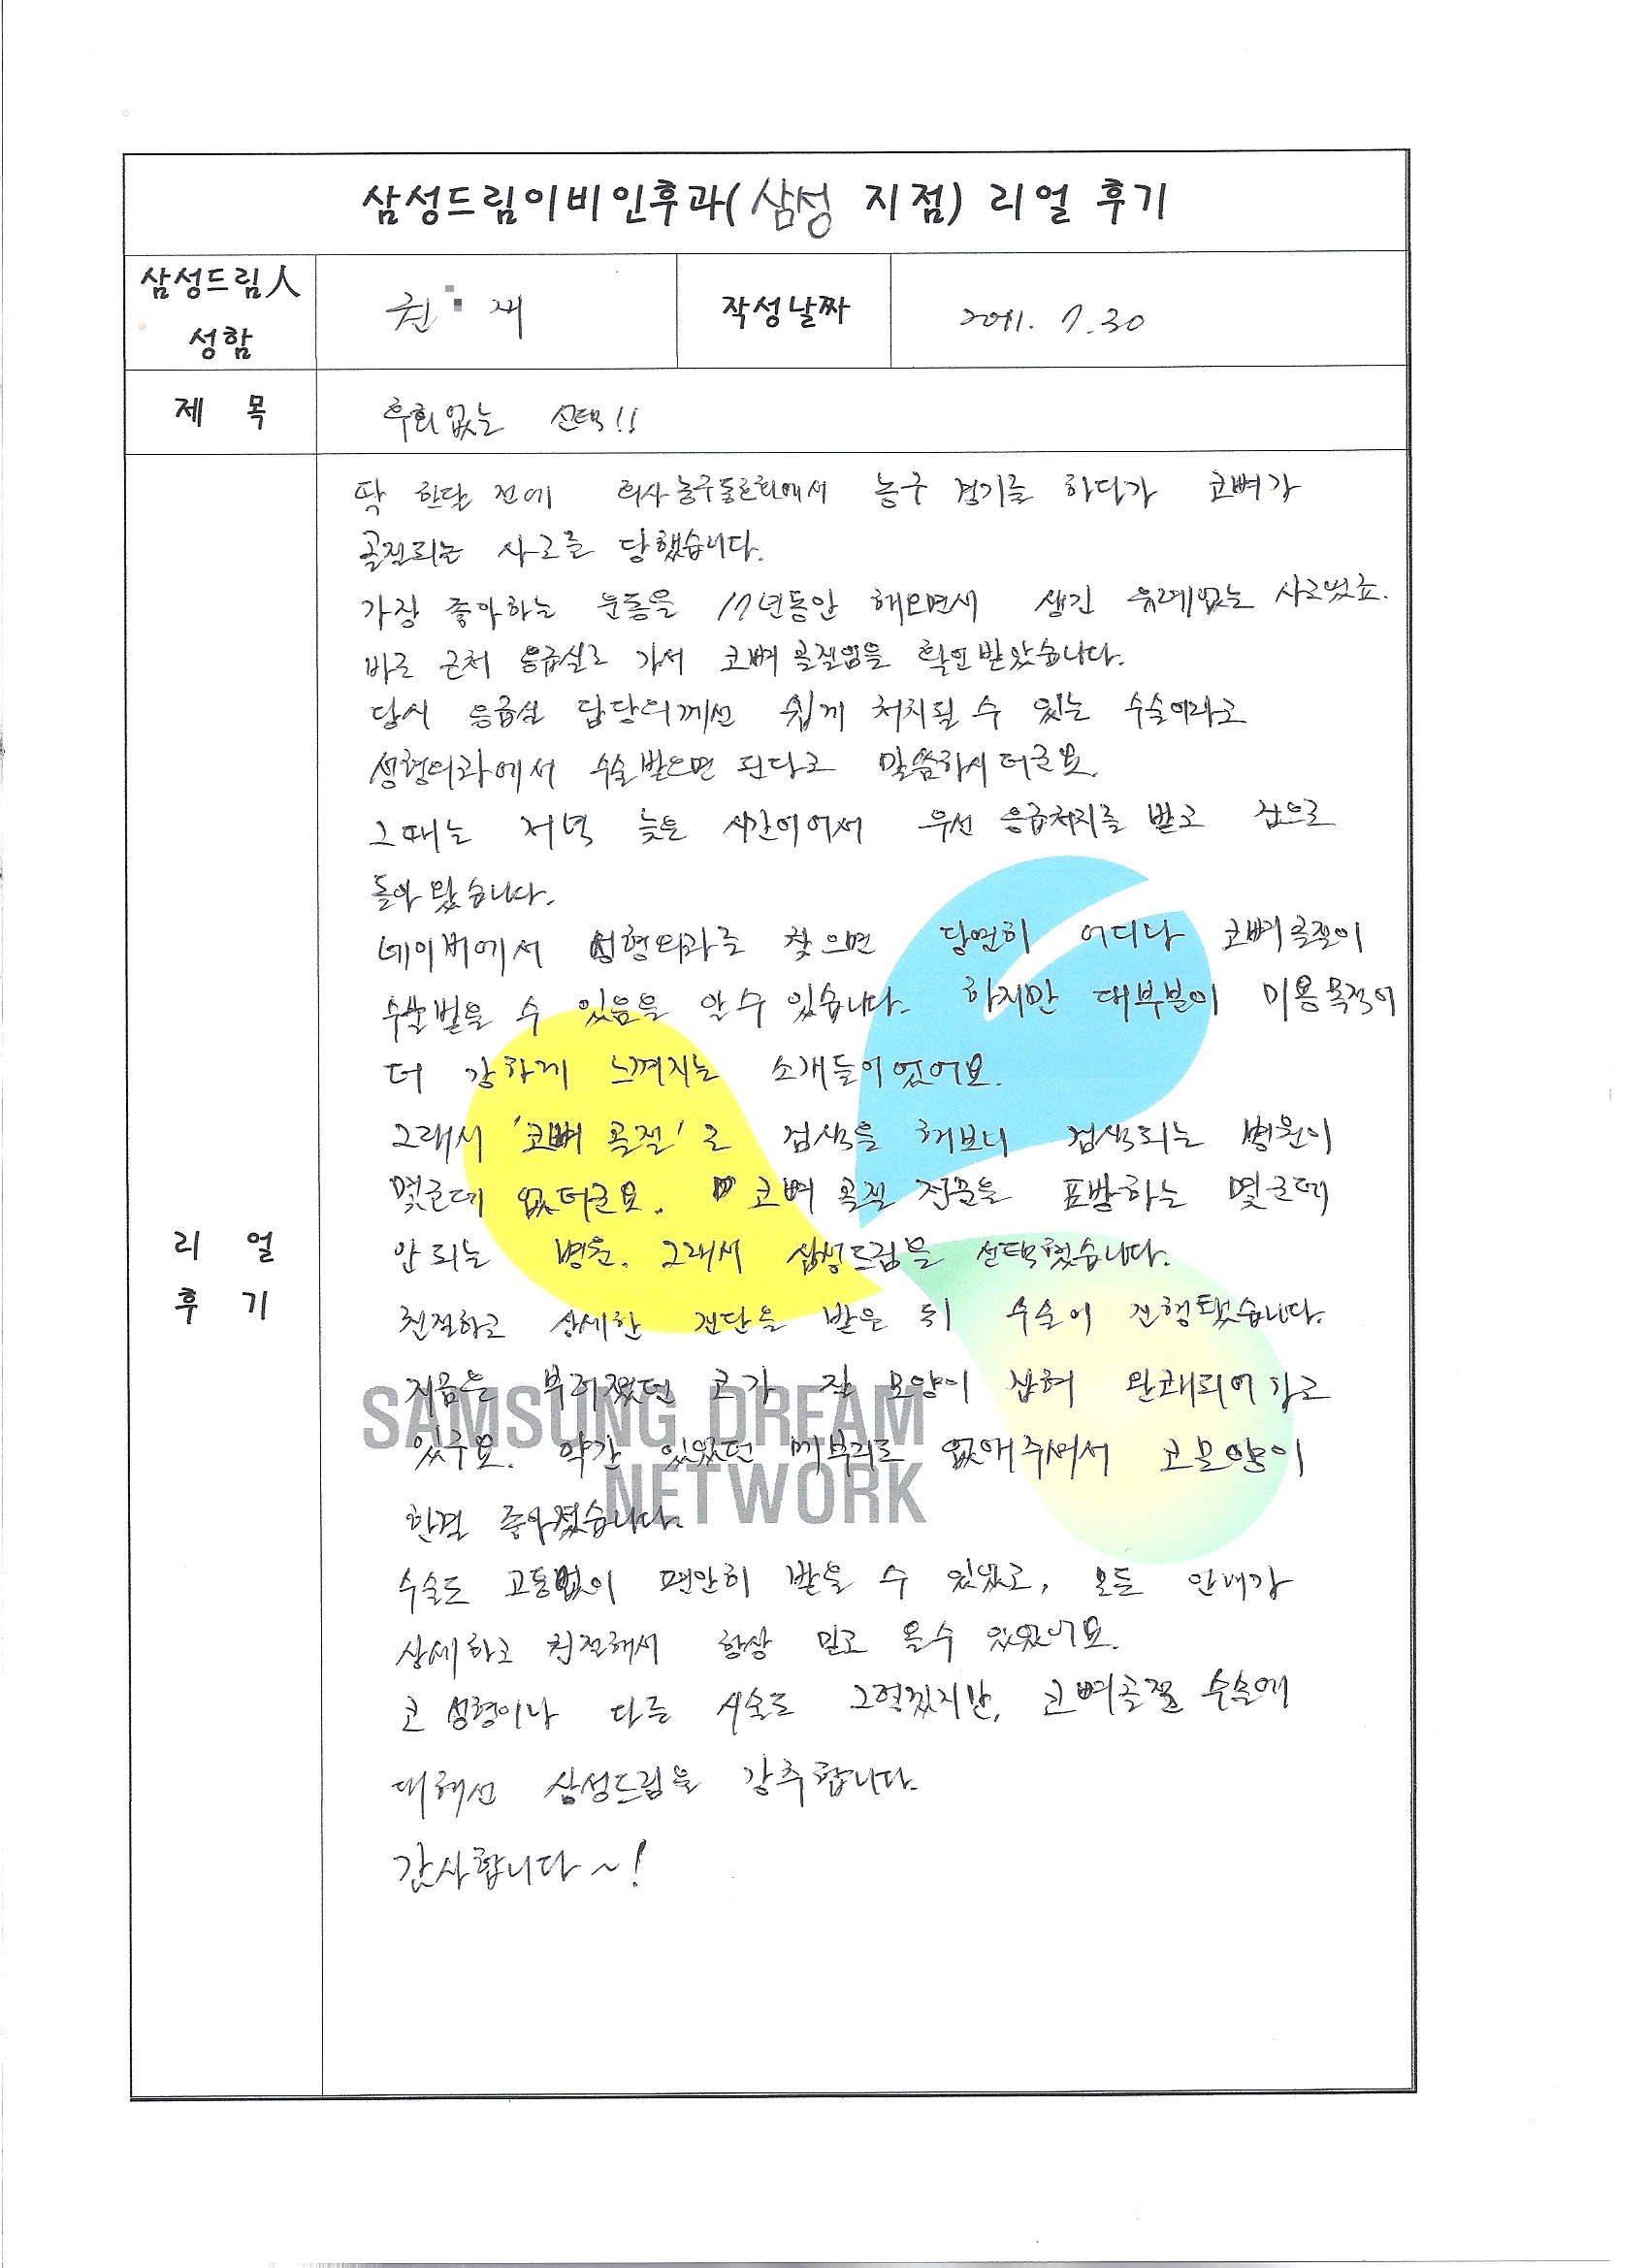 삼성드림이비인후과(삼성 지점) 리얼 후기
삼성드림人
성함
권 재
작성날짜
2011. 7. 30
제 목
후회없는 선택!!
딱 한달 전에 회사농구동호회에서 농구 경기를 하다가 코뼈가
골절되는 사고를 당했습니다.
가장 좋아하는 운동을 17년동안 해오면서 생긴 유례없는 사고였죠.
바로 근처 응급실로 가서 코뼈 골절임을 확인받았습니다.
당시 응급실 담당의께선 쉽게 처치될 수 있는 수술이라고
성형외과에서 수술받으면 된다고 말씀하시더군요.
그때는 저녁 늦은 시간이어서 우선 응급처치를 받고 집으로
돌아 왔습니다.
네이버에서 성형외과를 찾으면 당연히 어디나 코뼈골절이
수술받을 수 있음을 알 수 있습니다. 하지만 대부분이 미용목적이
더 강하게 느껴지는 소개들이었어요.
그래서 '코뼈 골절'로 검색을 해보니 검색되는 병원이
몇군데 없더군요. 코뼈 골절 전문을 표방하는 몇군데
안되는 병원. 그래서 삼성드림을 선택했습니다.
친절하고 상세한 진단을 받은 뒤 수술이 진행됐습니다.
지금은 부러졌던 코가 잘 모양이 잡혀 완쾌되어가고
있구요. 약간 있었던 메부리도 없애주셔서 코모양이
한결 좋아졌습니다.
수술도 고통없이 편안히 받을 수 있었고, 모든 안내가
상세하고 친절해서 항상 믿고 올수 있었어요.
코 성형이나 다른 시술도 그렇겠지만, 코뼈골절 수술에
대해선 삼성드림을 강추합니다.
감사합니다~!
리 얼
후 기
SAMSUNG DREAM
NETWORK